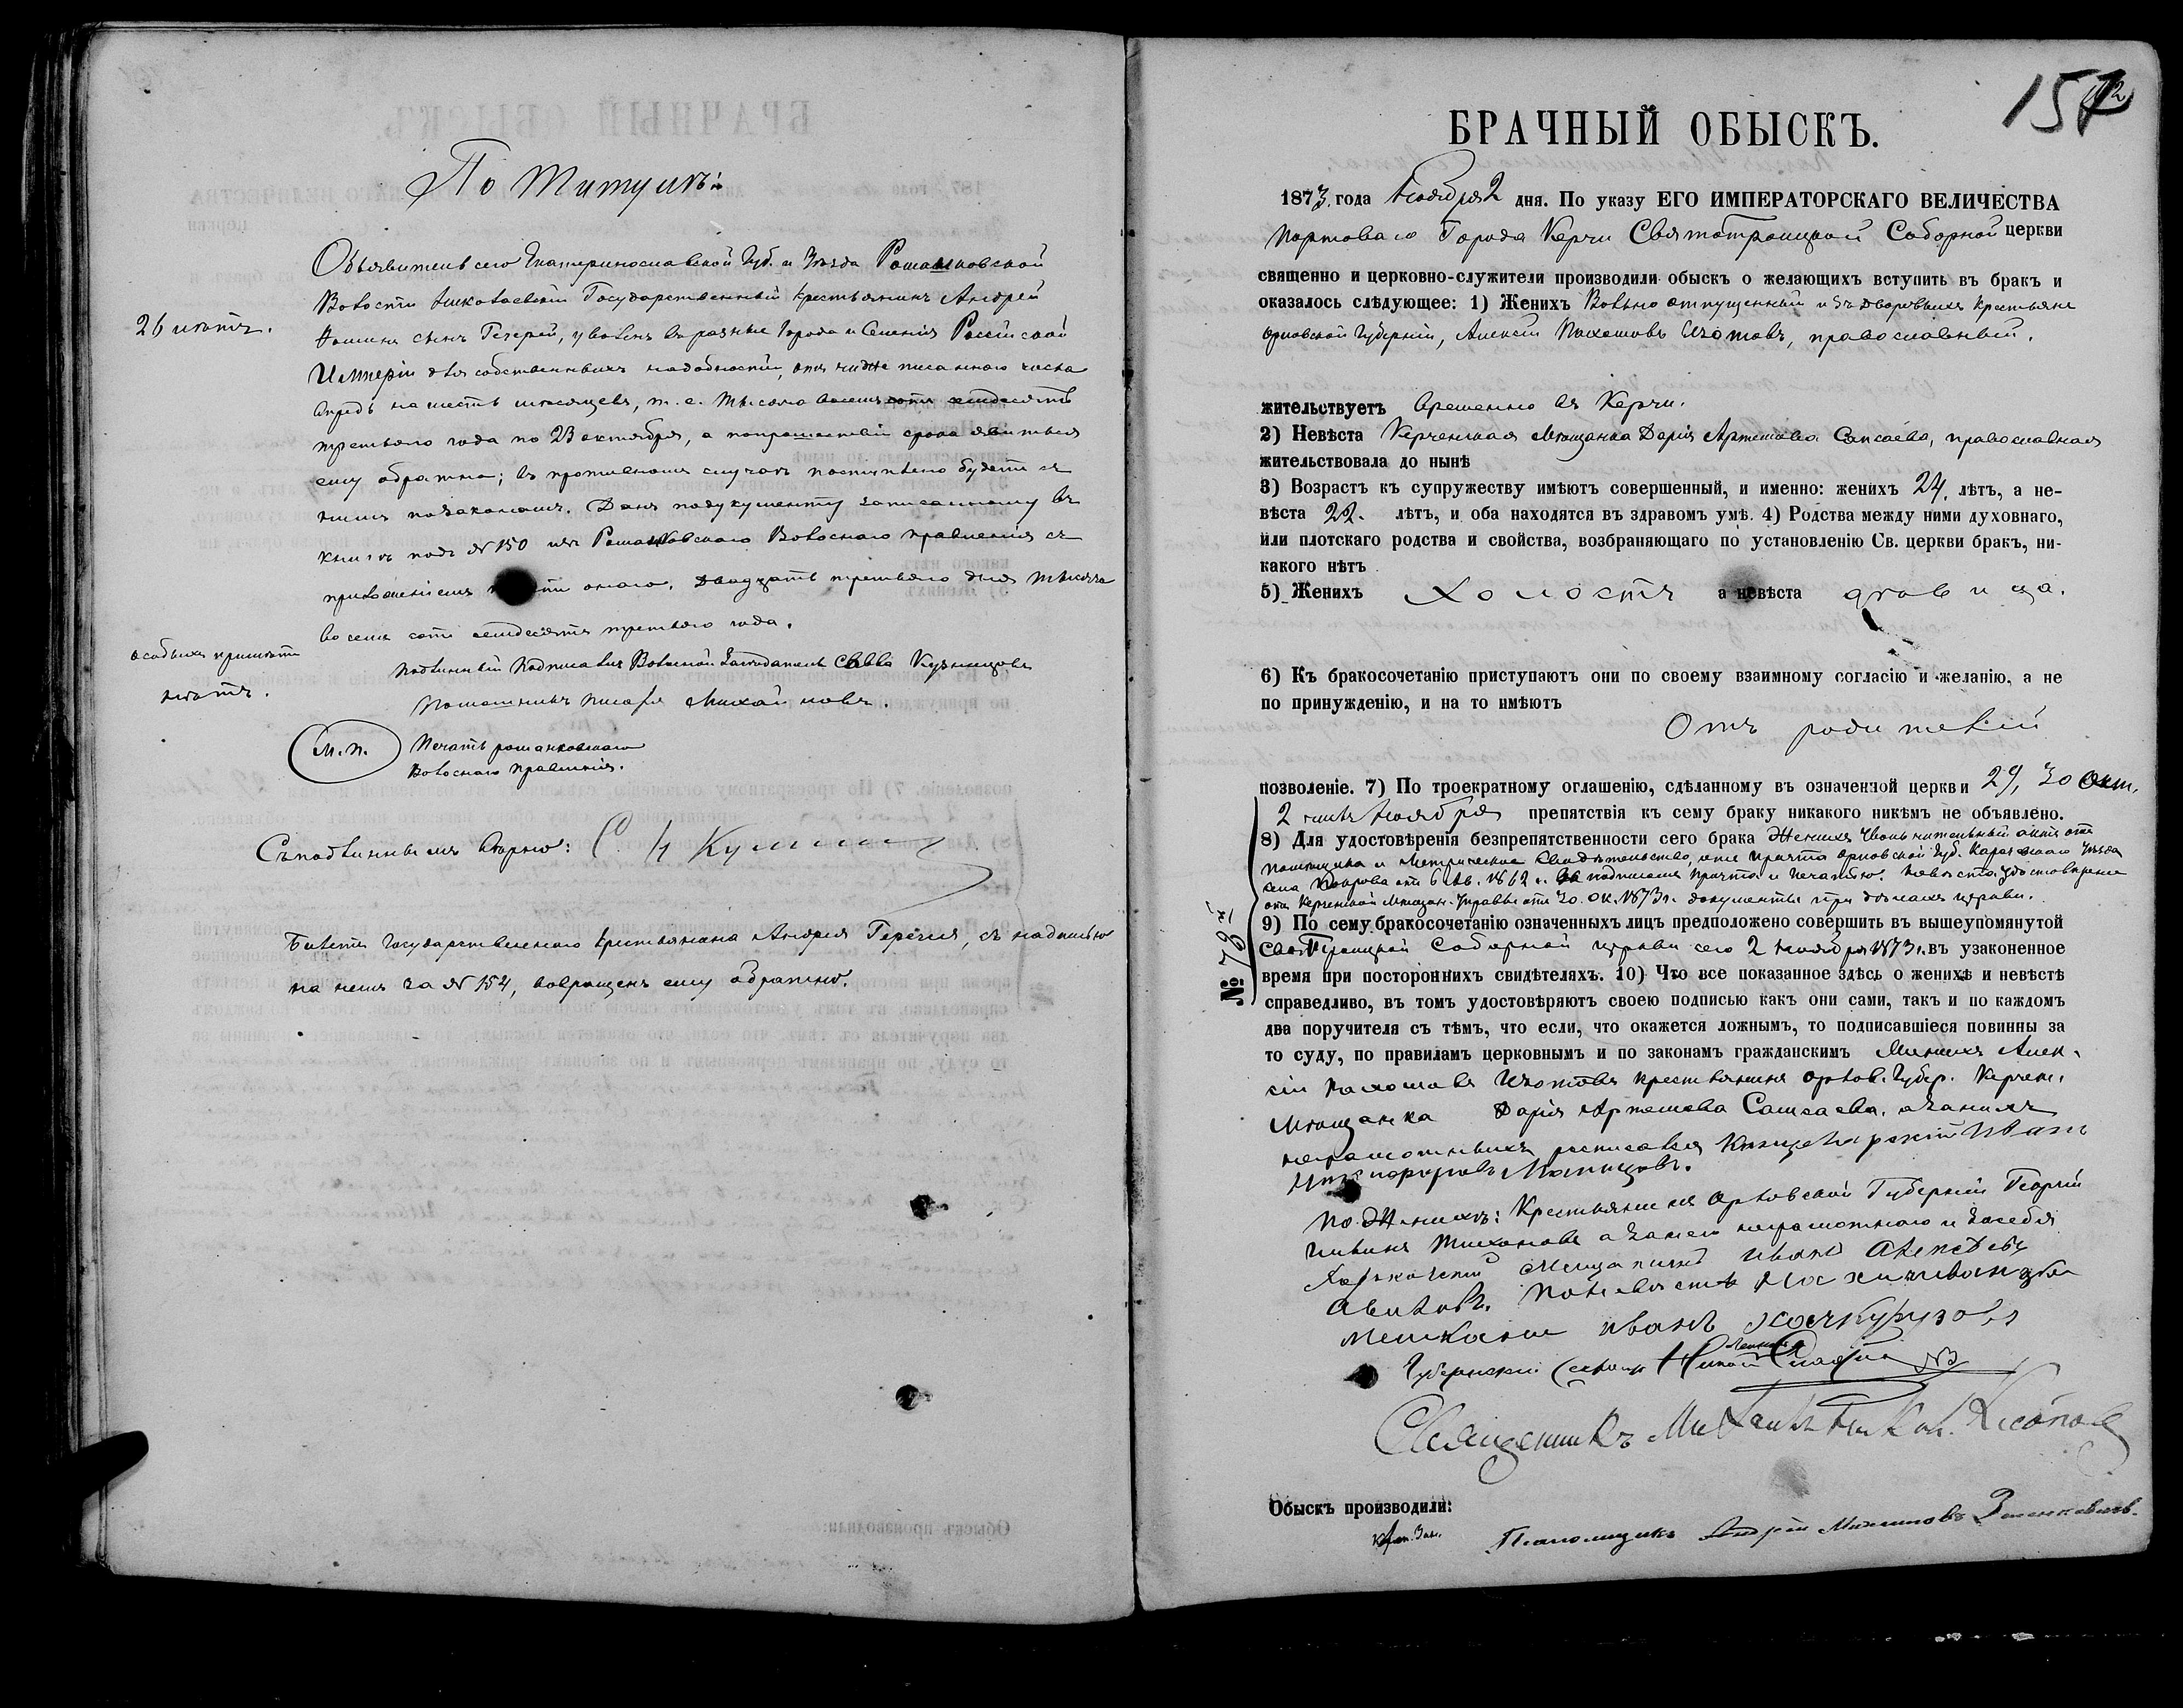 По Титулѣ:
Объявитель сего Екатеринославской Губ. и Уѣзда Романковской
Волости Николаевскій Государственный крестьянинъ Андрей
26 лѣтъ.
Фоминъ сынъ Гегерей, уволенъ въ разные Города и Селенія Россійской
Имперіи для собственныхъ надобностей, отъ ниже писаннаго числа
впредь на шесть мѣсяцевъ, т. е. тысяча восемьсотъ семдесятъ
третьяго года по 23 октября, а по прошествіи срока явиться
ему обратно; въ противномъ случаѣ поступлено будетъ съ
нимъ по законамъ. Данъ по документу записанному въ
книгѣ подъ № 150 изъ Романковскаго Волоснаго правленія съ
приложеніемъ онаго. Двадцать третьяго дня тысяча
восемь сотъ семдесятъ третьяго года.
особыхъ примѣтъ
нѣтъ.
Подлинный подписалъ Волосной Засѣдатель Савва Кузнецовъ
Помощникъ писаря Михайловъ.
М.П. Печать романковскаго
Волоснаго Правленія.
Съ подлиннымъ вѣрно:
Билетъ государственнаго крестьянина Андрея Герегея, съ надписью
на немъ за № 154, возвращенъ ему обратно.
157
БРАЧНЫЙ ОБЫСКЪ.
1873 года Ноября 2 дня. По указу ЕГО ИМПЕРАТОРСКАГО ВЕЛИЧЕСТВА
Портоваго Города Керчи Святотроицкой Соборной церкви
священно и церковно-служители производили обыскъ о желающихъ вступить въ бракъ и
оказалось слѣдующее: 1) Женихъ Вольно отпущенный изъ дворовыхъ крестьянъ
Орловской губерніи, Алексій Пахомовъ Изотовъ, православный.
жительствуетъ временно въ Керчи.
2) Невѣста Керченская Мѣщанка Дарія Артемова Сапсаева, православная
жительствовала до нынѣ
3) Возрастъ къ супружеству имѣютъ совершенный, и именно: женихъ 24. лѣтъ, а не-
вѣста 22. лѣтъ, и оба находятся въ здравомъ умѣ. 4) Родства между ними духовнаго,
или плотскаго родства и свойства, возбраняющаго по установленію Св. церкви бракъ, ни-
какого нѣтъ
5) Женихъ холостъ а невѣста дѣвица.
6) Къ бракосочетанію приступаютъ они по своему взаимному согласію и желанію, а не
по принужденію, и на то имѣютъ
Отъ родителей
позволеніе. 7) По троекратному оглашенію, сдѣланному въ означенной церкви 29, 30 Окт.
2 числъ Ноября препятствія къ сему браку никакого никѣмъ не объявлено.
8) Для удостовѣренія безпрепятственности сего брака Женихъ Увольнительный актъ отъ
помѣщика и Метрическое Свидѣтельство, отъ причта орловской губ. Карачевскаго Уѣзда
села Покрова отъ 6 1862 г. за подписомъ причта и печатью. Невѣста удостовѣреніе
отъ Керченской Мѣщан. Управы отъ 30. Ок. 1873 г. документы при дѣлахъ церкви.
№ 78й
9) По сему бракосочетанію означенныхъ лицъ предположено совершить въ вышеупомянутой
Святотроицкой Соборной церкви сего 2 ноября 1873 г. въ узаконенное
время при постороннихъ свидѣтеляхъ. 10) Что все показанное здѣсь о женихѣ и невѣстѣ
справедливо, въ томъ удостовѣряютъ своею подписью какъ они сами, такъ и по каждомъ
два поручителя съ тѣмъ, что если, что окажется ложнымъ, то подписавшіеся повинны за
то суду, по правиламъ церковнымъ и по законамъ гражданскимъ Женихъ Алек-
сій Пахомовъ Изотовъ крестьянинъ орлов. губер. Керчен.
Мѣщанка Дарія Артемова Сапсаева. а за нихъ
неграмотныхъ росписался Канцелярскій Иванъ
По Женихѣ: Крестьянинъ Орловской Губерніи Георгій
Тихоновъ а за него неграмотнаго и за себя
Харьковскій мещанинъ Иванъ Алексѣевъ
По невѣстѣ Нахичеванскій
мешканин иванъ
Губернскій Секр.
Священникъ Михаилъ
Обыскъ производили:
Псаломщикъ Андрей